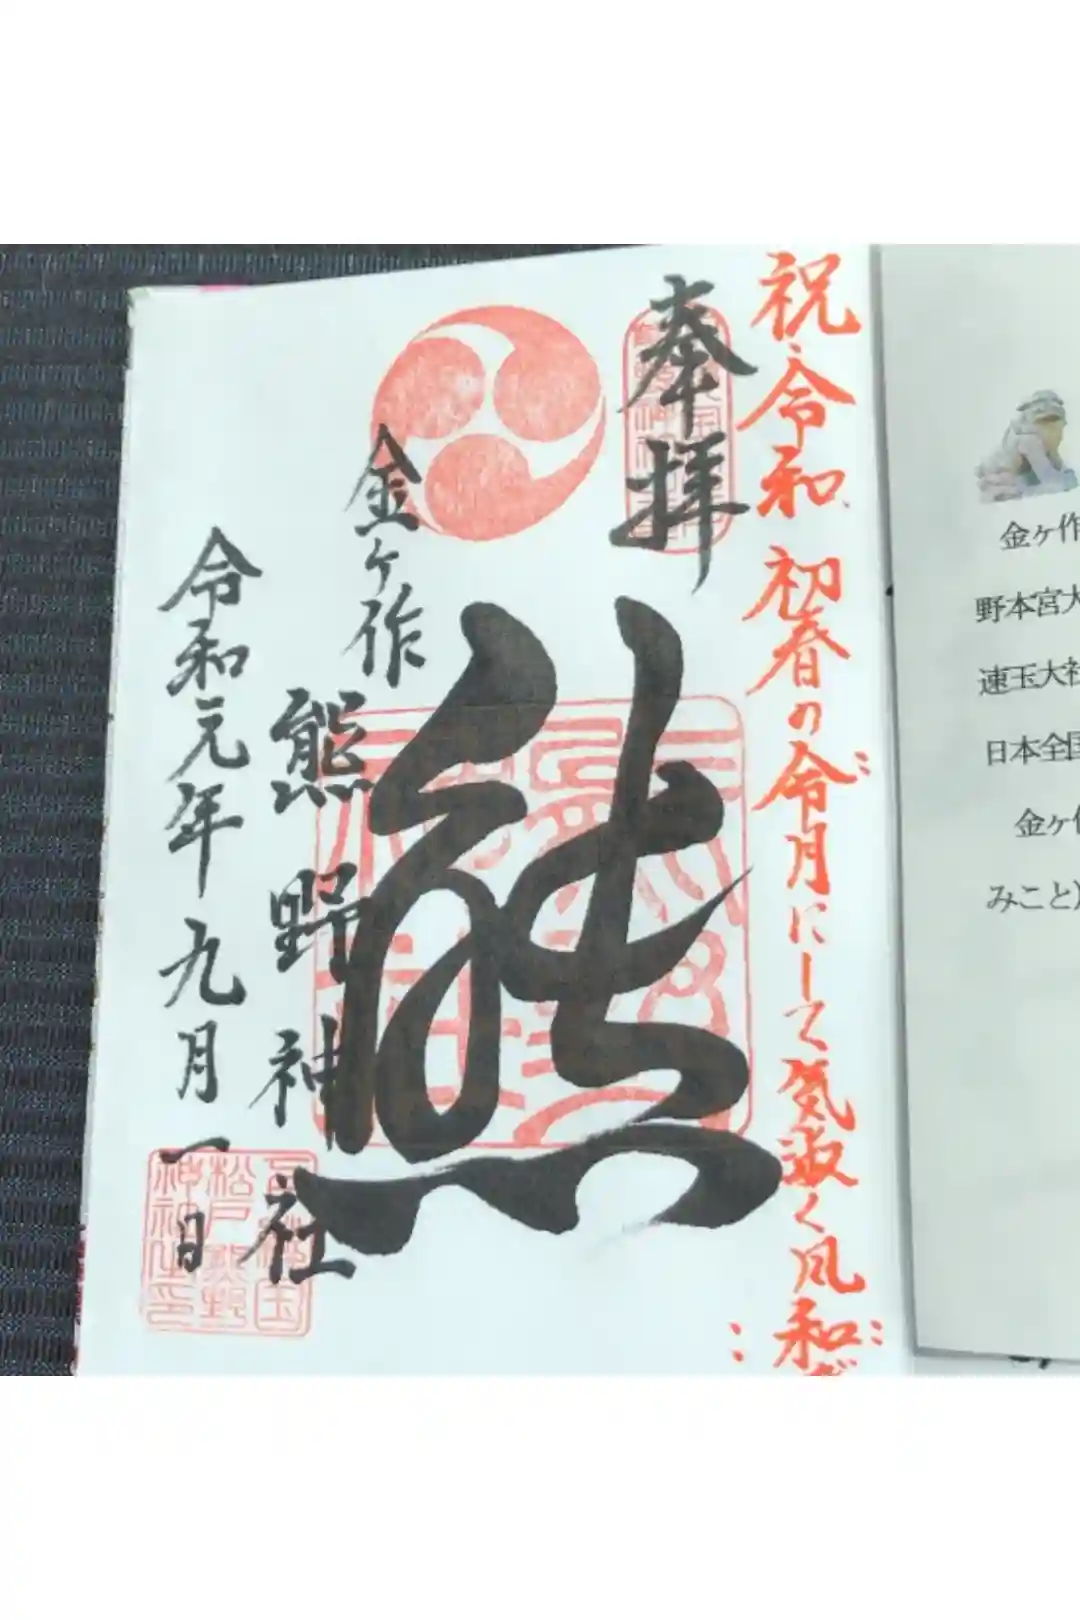 祝 令和 初春の令月にして気淑く風和
奉拝
熊
金ヶ作
熊野神社
令和元年九月一日
金ヶ作
野本宮大
速玉大社
日本全国
金ヶ作
みこと)